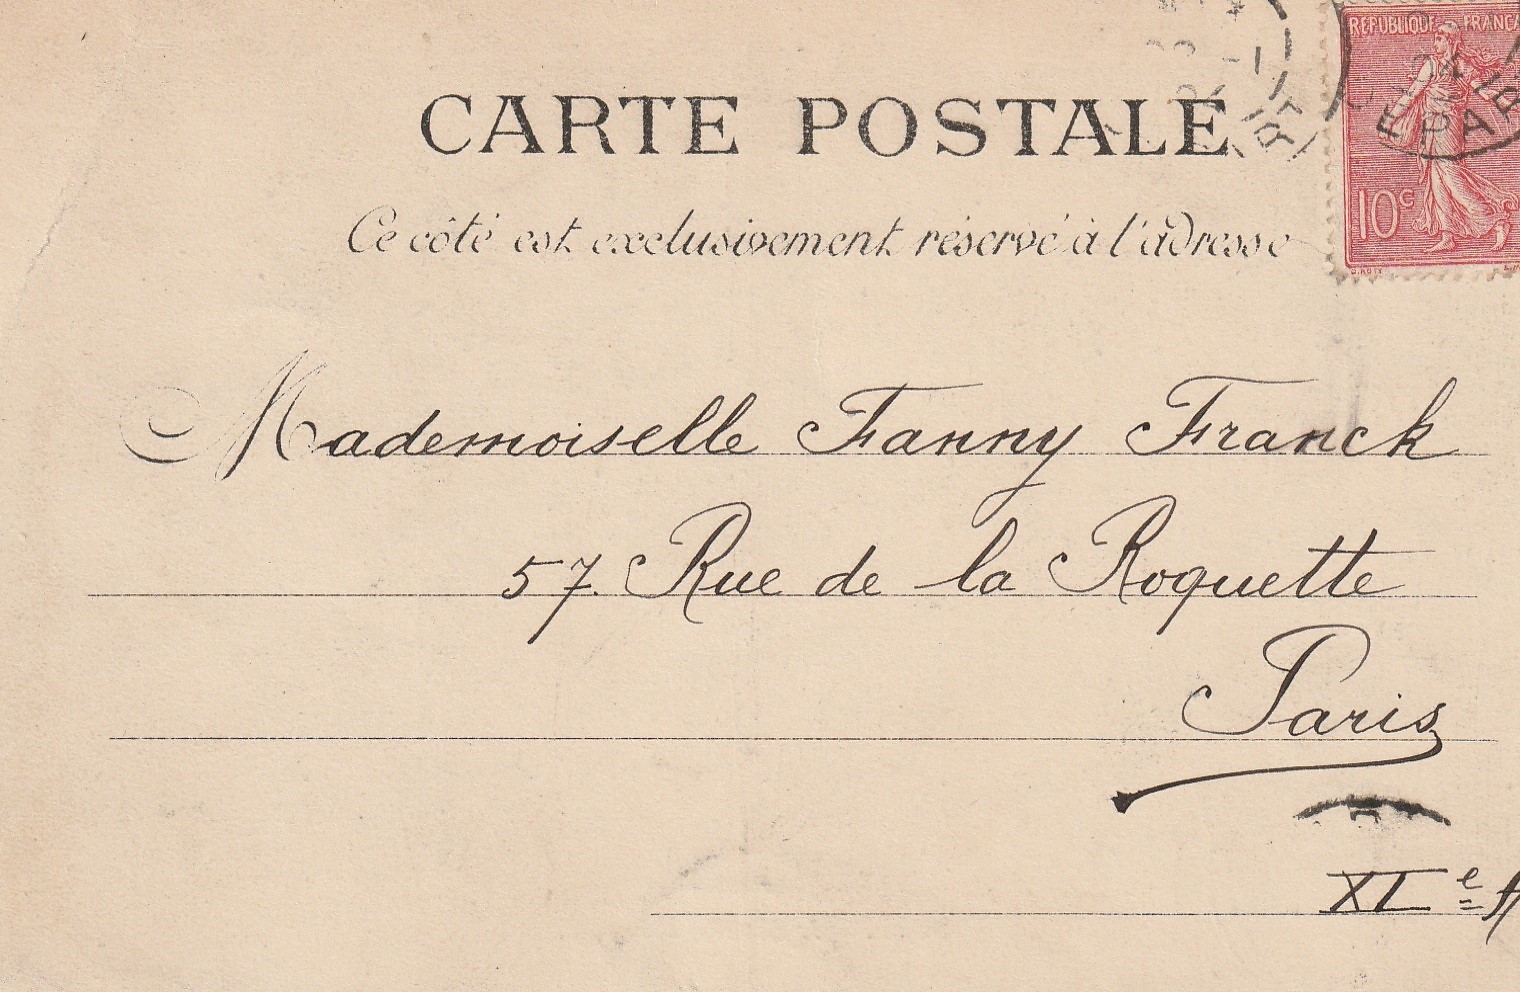 CARTE POSTALE
Ce côté est exclusivement réservé à l'adresse
REPUBLIQUE FRANÇA
10c
Mademoiselle Fanny Franck
57. Rue de la Roquette
Paris
XIe A